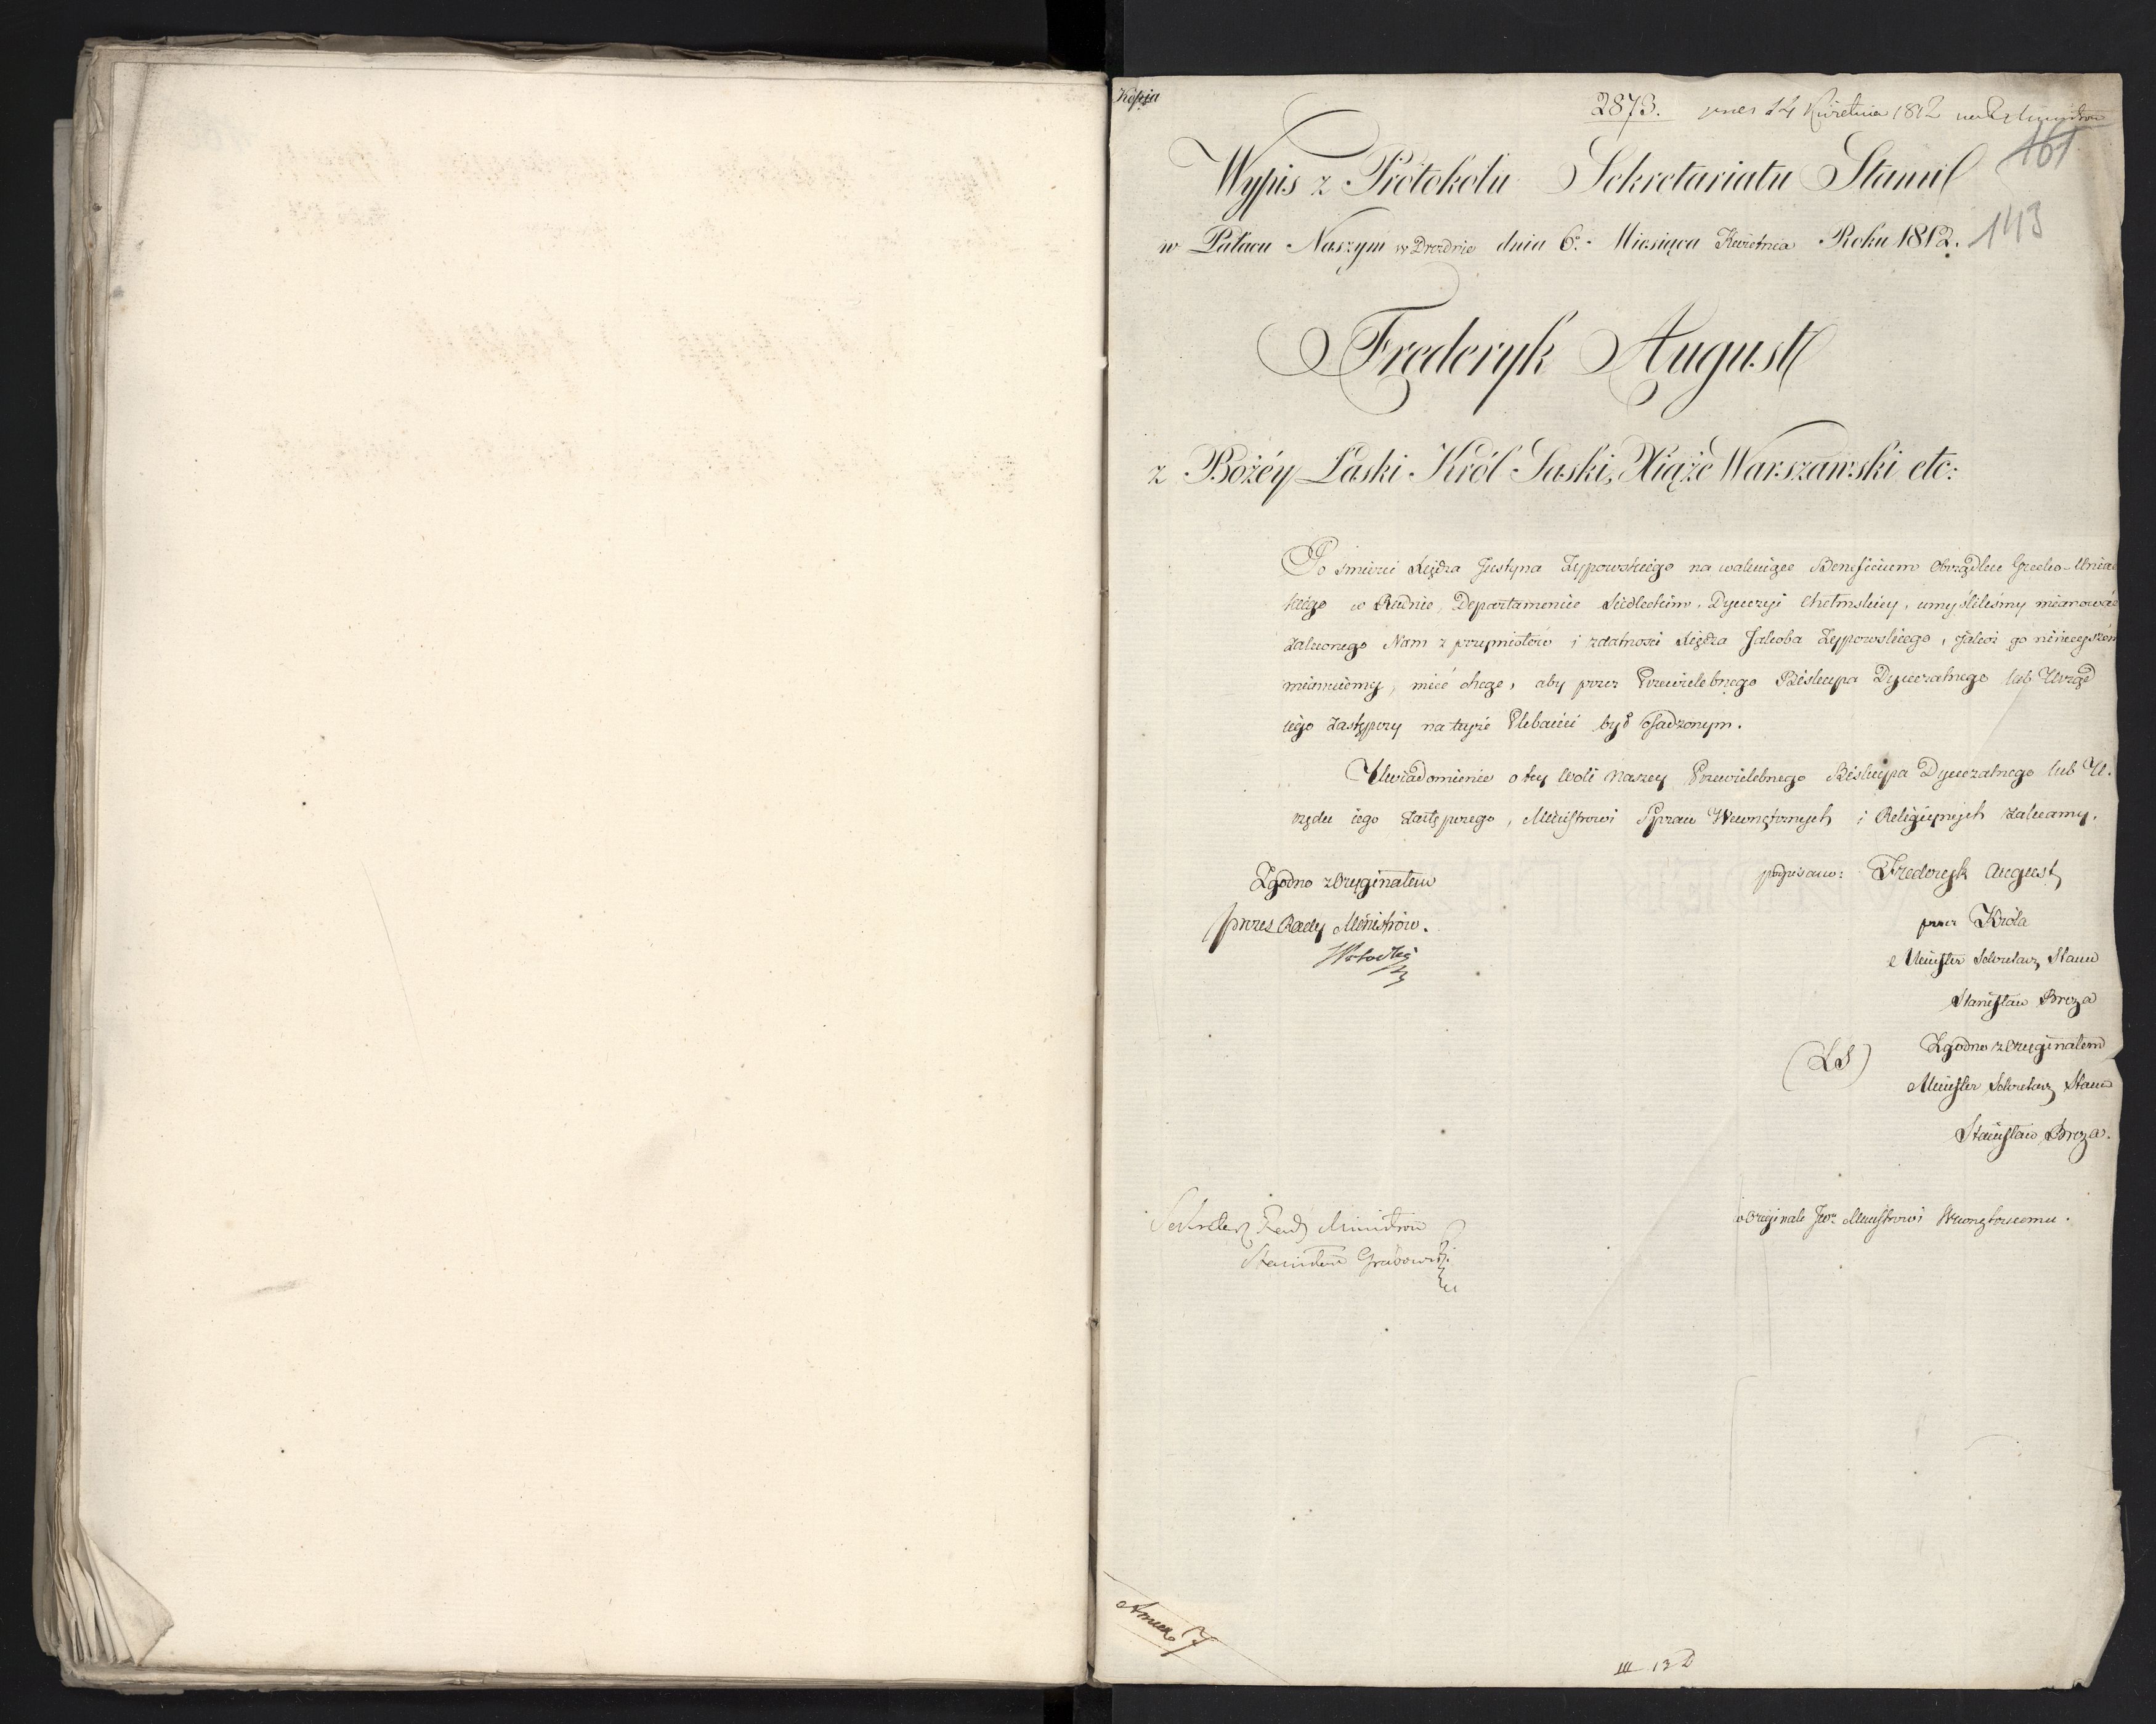 Kopja
2873. pnes 14 Kwietnia 1812
161
Wypis z Protokołu Sekretariatu Stanu
143
w Pałacu Naszym w Dreźnie dnia 6o. Miesiąca Kwietnia Roku 1812.
Fryderyk August
z Bożéy Łaski Król Saski, Xiążę Warszawski etc:
Po śmierci Xiędza Justyna Łyppowskiego na wakuiące Beneficium Obrządku Grecko-Unic
kiego w Rudnie, Departamencie Siedleckim, Dyecezyi Chełmskiey, umyśliliśmy mianować
zaleconego Nam z przymiotów i zdatności Xiędza Jakóba Łyppowskiego, jakoż go ninieyszém
mianuiemy, mieć chcąc, aby przez Przewielebnego Biskupa Dyecezalnego lub Urząd
iego zastępczy na teyże Plebanii był osadzonym.
Uwiadomienie o tey woli Naszey Przewielebnego Biskupa Dyecezalnego lub U-
rzędu iego Zastępczego, Ministrowi Spraw Wewnętrznych i Religiynych zalecamy.
Zgodno z Oryginałem
podpisano: Fryderyk August
prezes Rady Ministrów.
przez Króla
Minister Sekretarz Stanu
Stanisław Breza
(LS)
Zgodno z Oryginałem
Minister Sekretarz Stanu
Stanisław Breza.
Sekretarz Rady Ministrów
Stanisław Grabowski
w Oryginale JWu Ministrowi Wewnętrznemu.
Annex 7
III 13 D